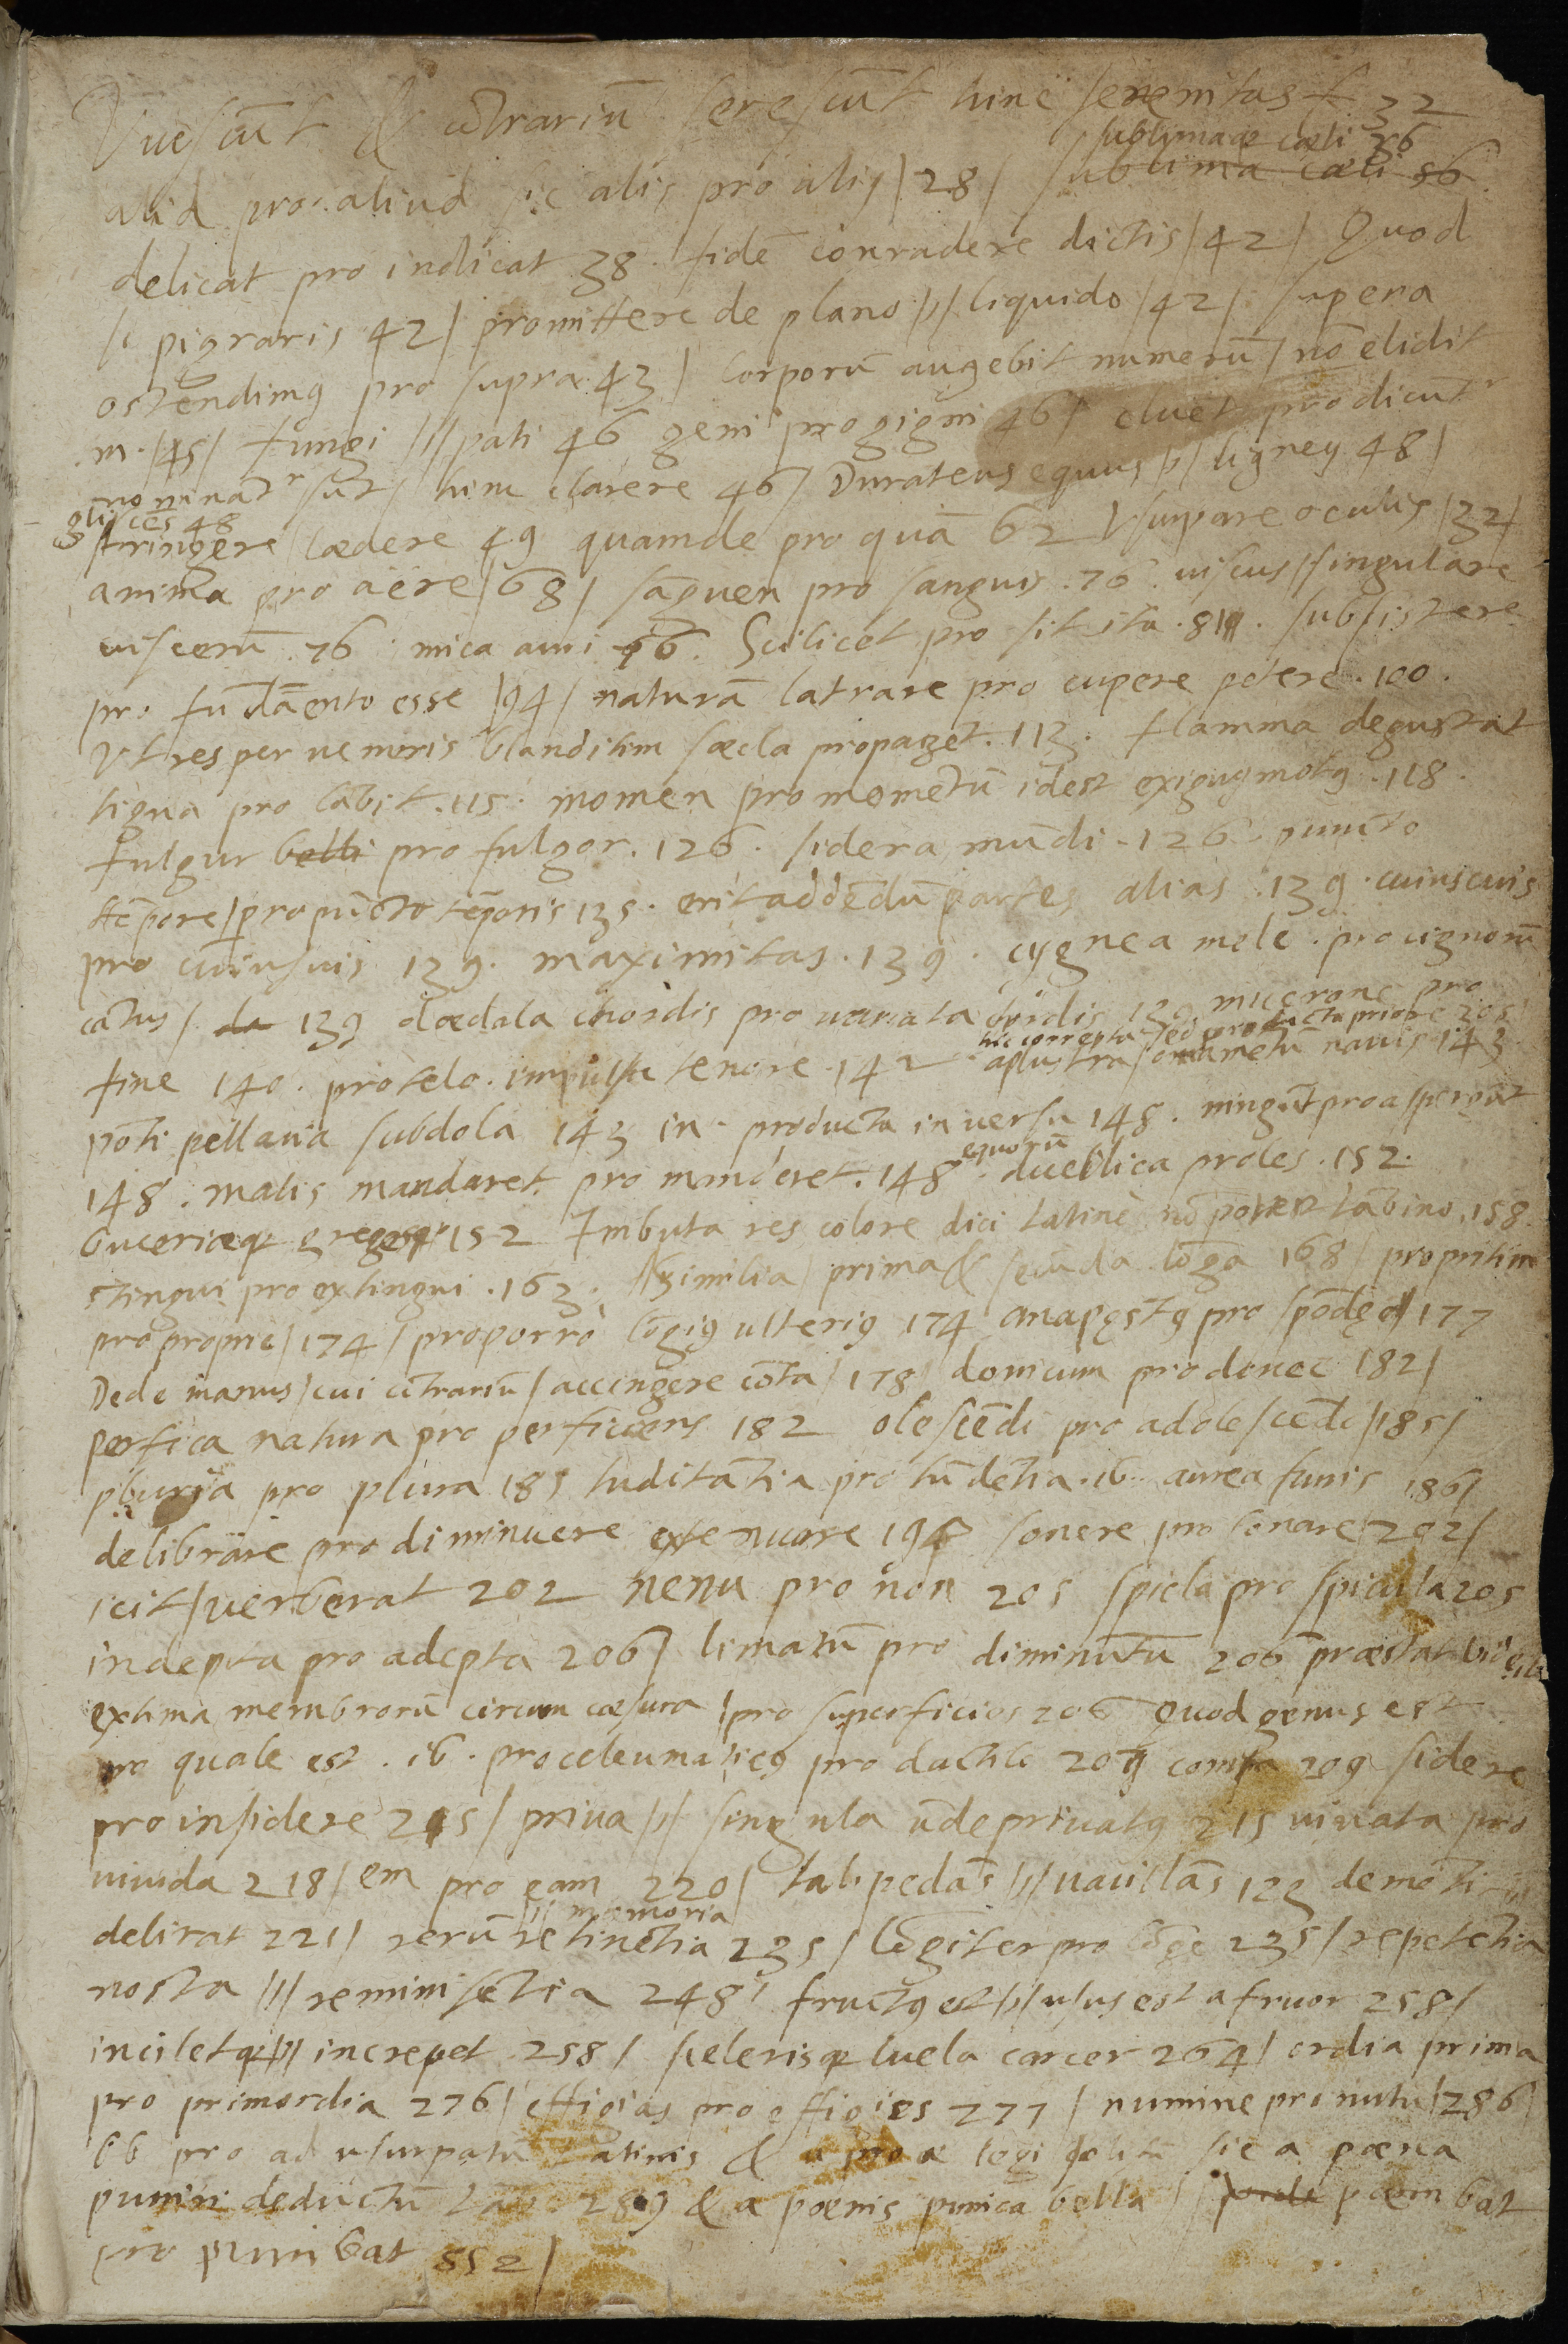 Viuescūt & cōtrariū serescūt hinc serenitas f 32
sublimaq; cæli 36
alid pro aliud sic alis pro aliꝰ | 28 | sublima cæli 36
delicat pro indicat 38. fidē conradere dictis | 42 | Quod
si pigraris 42 | promittere de plano /1/ liquido | 42 | supera
ostendimꝰ pro supra 43 | corporū augebit numerū / nō elidit
m. | 45 | fungi /1/ pati 46 geni pro gigni 46 | cluēt pro dicūtr
nominātr sūt / hinc clarere 46 | Durateus equus /1/ ligneꝰ 48 |
gliscēs 48
stringere lædere 49 quamde pro quā 62 Vsurpare oculis | 32 |
anima pro aëre | 68 | sāguen pro sanguis. 76. uiscus / singulare
uiscerū. 76. mica auri 76. Scilicet pro sit ita. 81. subsistere
pro fūdāento esse | 94 | naturā latrare pro cupere petere. 100.
Vt res per ueneris blanditim sæcla propaget. 113. flamma degustat
tigna pro lābit. 115. momen pro momētū idest exiguꝰ motꝰ. 118.
fulgur belli pro fulgor. 126. sidera mūdi. 126. puncto
tēpore | pro pūcto tēporis 135. erit addēdū partes alias. 139. cuiuscuis
pro cuiusuis 139. maximitas. 139. cygnea mele. pro cignorū
cātus | da 139 dædala chordis pro uariata 139. mucrone pro
hic correpta sed producta priore 205
fine 140. protelo. impulsu tenore. 142 aplustra / ornamētū nauis 143
pōti pellauia subdola 143 in. producta in uersu 148. ningūt pro aspergūt
148. malis mandaret pro manderet. 148.
equorū
duellica proles. 152.
buceriæq; gregesq; 152 Imbuta res colore dici latine nō potest lābino. 158.
stingui pro extingui. 163. similia prima & secūda lōga 168 | propritim
pro proprie | 174 | proporro lōgiꝰ ulteriꝰ 174 anapęstꝰ pro spōdęo 177
Dede manus / cui cōtrariū / accingere cōtra | 178 | donicum pro donec 182 |
perfica natura pro perficiens 182 olescēdi pro adolescēdi | 185 |
pluria pro plura 185 tuditātia pro tūdētia. ib. aurea funis 186 |
delibrare pro diminuere extenuare 194 sonere pro sonare | 202 |
icit / uerberat 202 nenu pro non 205 spicla pro spicula 205
indepta pro adepta 206 | limatū pro diminutū 206 præstat
extima membrorū circum cæsura | pro superficies 206 quod genus est
pro quale est. ib. proceleumaticꝰ pro dactilo 207 209 sidere
pro insidere 215 | priua /1/ singula ūde priuatꝰ 215 uiuata pro
uiuida 218 | em pro eam 220 | labipedās /1/ uacillās 123 demēti
/1/ memoria
delirat 221 | rerū retinētia 235 | lōgiter pro lōge 235 | repetētia
nostra /1/ reminiscētia 248 | fructꝰ est /1/ usus est a fruor 258 |
inciletq; /1/ increpet 258 | scelerisq; luela carcer 264 | ordia prima
pro primordia 276 | effigias pro effigies 277 | numine pro nutu | 286 |
ob pro ad usurpatū latinis & sic a pœna
puniri deductū 289 & a pœnis punica bella | pœnibat
pro punibat 552 |